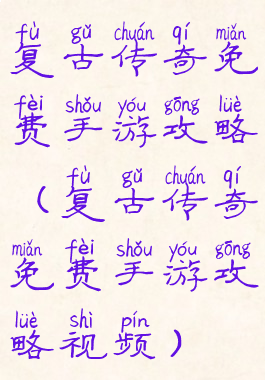 fù gǔ chuán qí miǎn
复古传奇免
fèi shǒu yóu gōng lüè
费手游攻略
fù gǔ chuán qí
（复古传奇
miǎn fèi shǒu yóu gōng
免费手游攻
lüè shì pín
略视频）